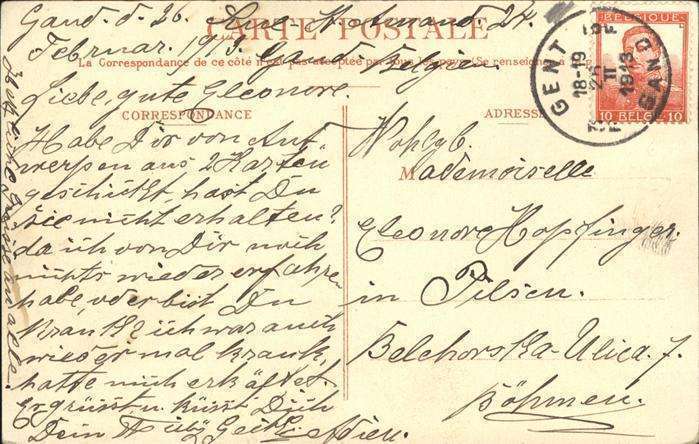 Gand. d. 26. Rue Normand. 24.
CARTE POSTALE
Februar. 1913. Gand Belgien.
La Correspondance de ce côté n'est pas acceptée par tous les pays (Se renseigner à
Liebe, gute Eleonore.
CORRESPONDANCE
Habe Dir von Ant
werpen aus 2 Karten
geschickt, hast Du
sie nicht erhalten?
da ich von Dir noch
nichts wieder erfahre
habe, oder bist Du
krank? ich war auch
wieder mal krank,
hatte mich erkältet.
Es grüsst u. küsst Dich
Dein Adieu.
Grüsse an alle.
ADRESSE
Wohlgb.
Mademoiselle
Eleonore Hopfinger.
in Pilsen.
Belchorska-Ulica 7.
Böhmen.
GENT
18-19
25 II
1913
GAND
BELGIQUE
10 BELGIË 10